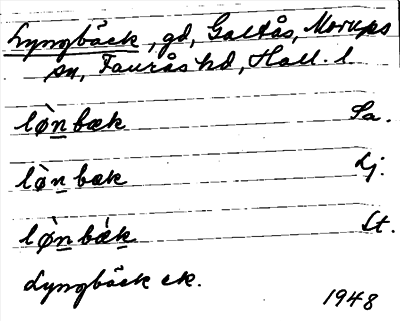 Lyngbäck, gd, Galtås, Morups
sn, Faurås hd, Hall. l
lø̀n bæk Sa.
lø̀n bæk Lj.
lø̀n bæ̀k St.
Lyngbäck ek.
1948